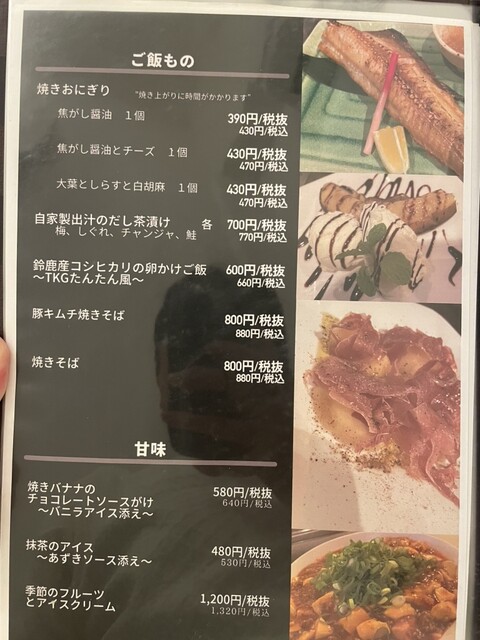 ご飯もの
焼きおにぎり "焼き上がりに時間がかかります"
焦がし醤油 1個 390円/税抜
430円/税込
焦がし醤油とチーズ 1個 430円/税抜
470円/税込
大葉としらすと白胡麻 1個 430円/税抜
470円/税込
自家製出汁のだし茶漬け 各 700円/税抜
梅、しぐれ、チャンジャ、鮭 770円/税込
鈴鹿産コシヒカリの卵かけご飯 600円/税抜
〜TKGたんたん風〜 660円/税込
豚キムチ焼きそば 800円/税抜
880円/税込
焼きそば 800円/税抜
880円/税込
甘味
焼きバナナの 580円/税抜
チョコレートソースがけ 640円/税込
〜バニラアイス添え〜
抹茶のアイス 480円/税抜
〜あずきソース添え〜 530円/税込
季節のフルーツ 1,200円/税抜
とアイスクリーム 1,320円/税込